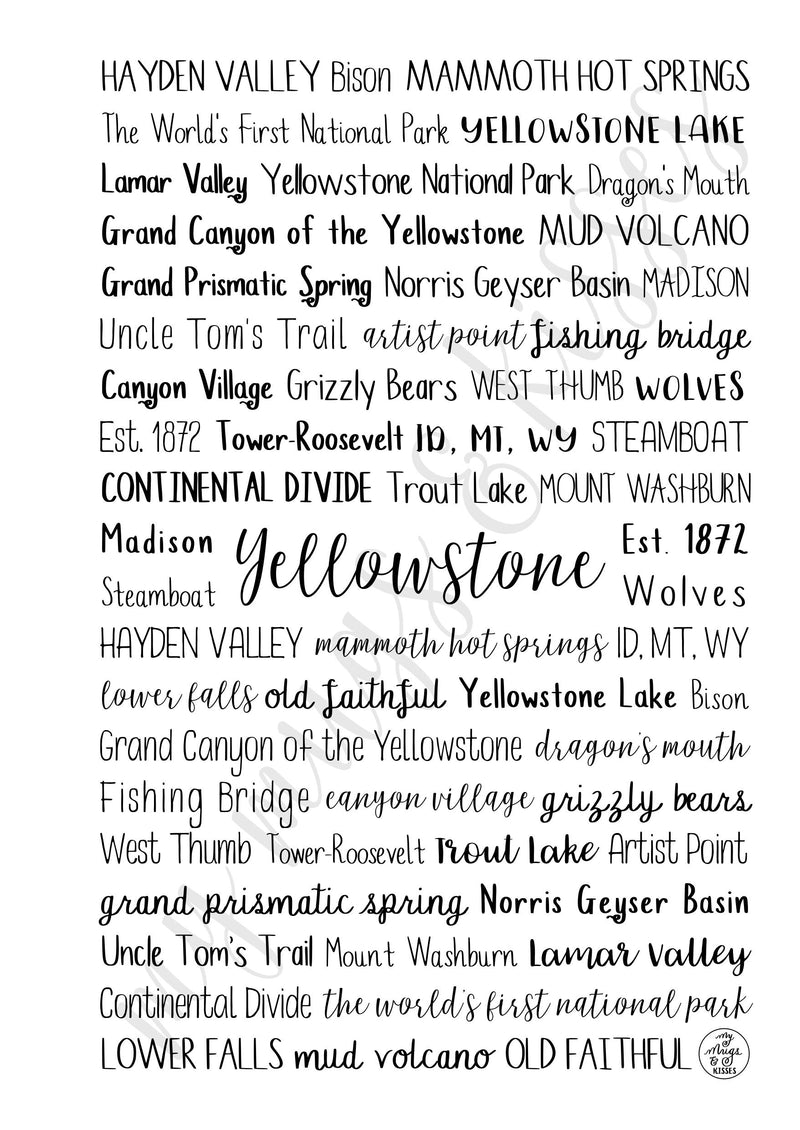 HAYDEN VALLEY Bison MAMMOTH HOT SPRINGS
The World's First National Park YELLOWSTONE LAKE
Lamar Valley Yellowstone National Park Dragon's Mouth
Grand Canyon of the Yellowstone MUD VOLCANO
Grand Prismatic Spring Norris Geyser Basin MADISON
Uncle Tom's Trail artist point fishing bridge
Canyon Village Grizzly Bears WEST THUMB WOLVES
Est. 1872 Tower-Roosevelt ID, MT, WY STEAMBOAT
CONTINENTAL DIVIDE Trout Lake MOUNT WASHBURN
Madison
Steamboat
Yellowstone
Est. 1872
Wolves
HAYDEN VALLEY mammoth hot springs ID, MT, WY
lower falls old faithful Yellowstone Lake Bison
Grand Canyon of the Yellowstone dragon's mouth
Fishing Bridge canyon village grizzly bears
West Thumb Tower-Roosevelt Trout Lake Artist Point
grand prismatic spring Norris Geyser Basin
Uncle Tom's Trail Mount Washburn Lamar Valley
Continental Divide the world's first national park
LOWER FALLS mud volcano OLD FAITHFUL
my
mugs
&
KISSES
my mugs & kisses